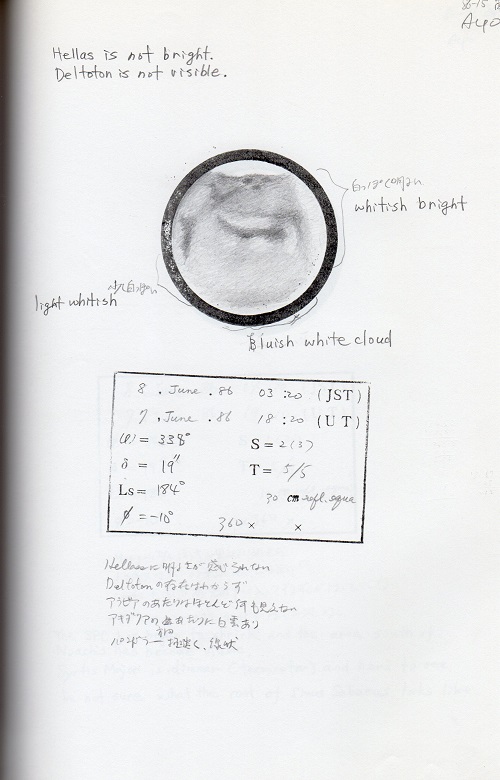 Hellas is not bright.
Deltoton is not visible.
白っぽく明るい
whitish bright
やや白っぽい
light whitish
Bluish white cloud
8 . June . 86 03 : 20 (JST)
7 . June . 86 18 : 20 (UT)
ω = 338° S = 2(3)
δ = 19" T = 5/5
Ls = 184° 30 cm refl. equa
φ = -10° 360 × ×
Hellasに明るさが感じられない
Deltotonの存在はわからず
アラビアのあたりはほとんど何も見えない
アキダリアの あたりに白雲あり